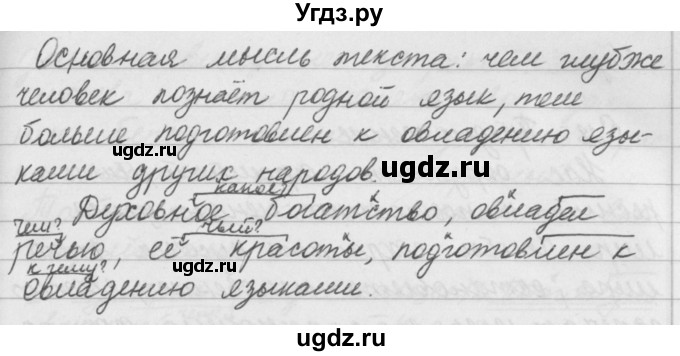 Угдз.ру
Основная мысль текста: чем глубже
человек познаёт родной язык, тем
больше подготовлен к овладению язы-
ugdz.ru ugdz.ru
ками других народов.
ugdz.ru
какое?
Духовное богатство, овладел
чем? чьей?
речью, её красоты, подготовлен к
к чему?
овладению языками.
ugdz.ru ugdz.ru
ugdz.ru